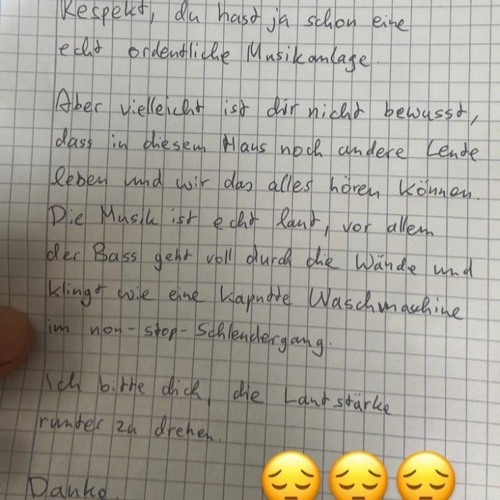 Respekt, du hast ja schon eine
echt ordentliche Musikanlage.
Aber vielleicht ist dir nicht bewusst,
dass in diesem Haus noch andere Leute
leben und wir das alles hören können.
Die Musik ist echt laut, vor allem
der Bass geht voll durch die Wände und
klingt wie eine kaputte Waschmaschine
im non-stop-Schleudergang.
Ich bitte dich, die Lautstärke
runter zu drehen.
Danke